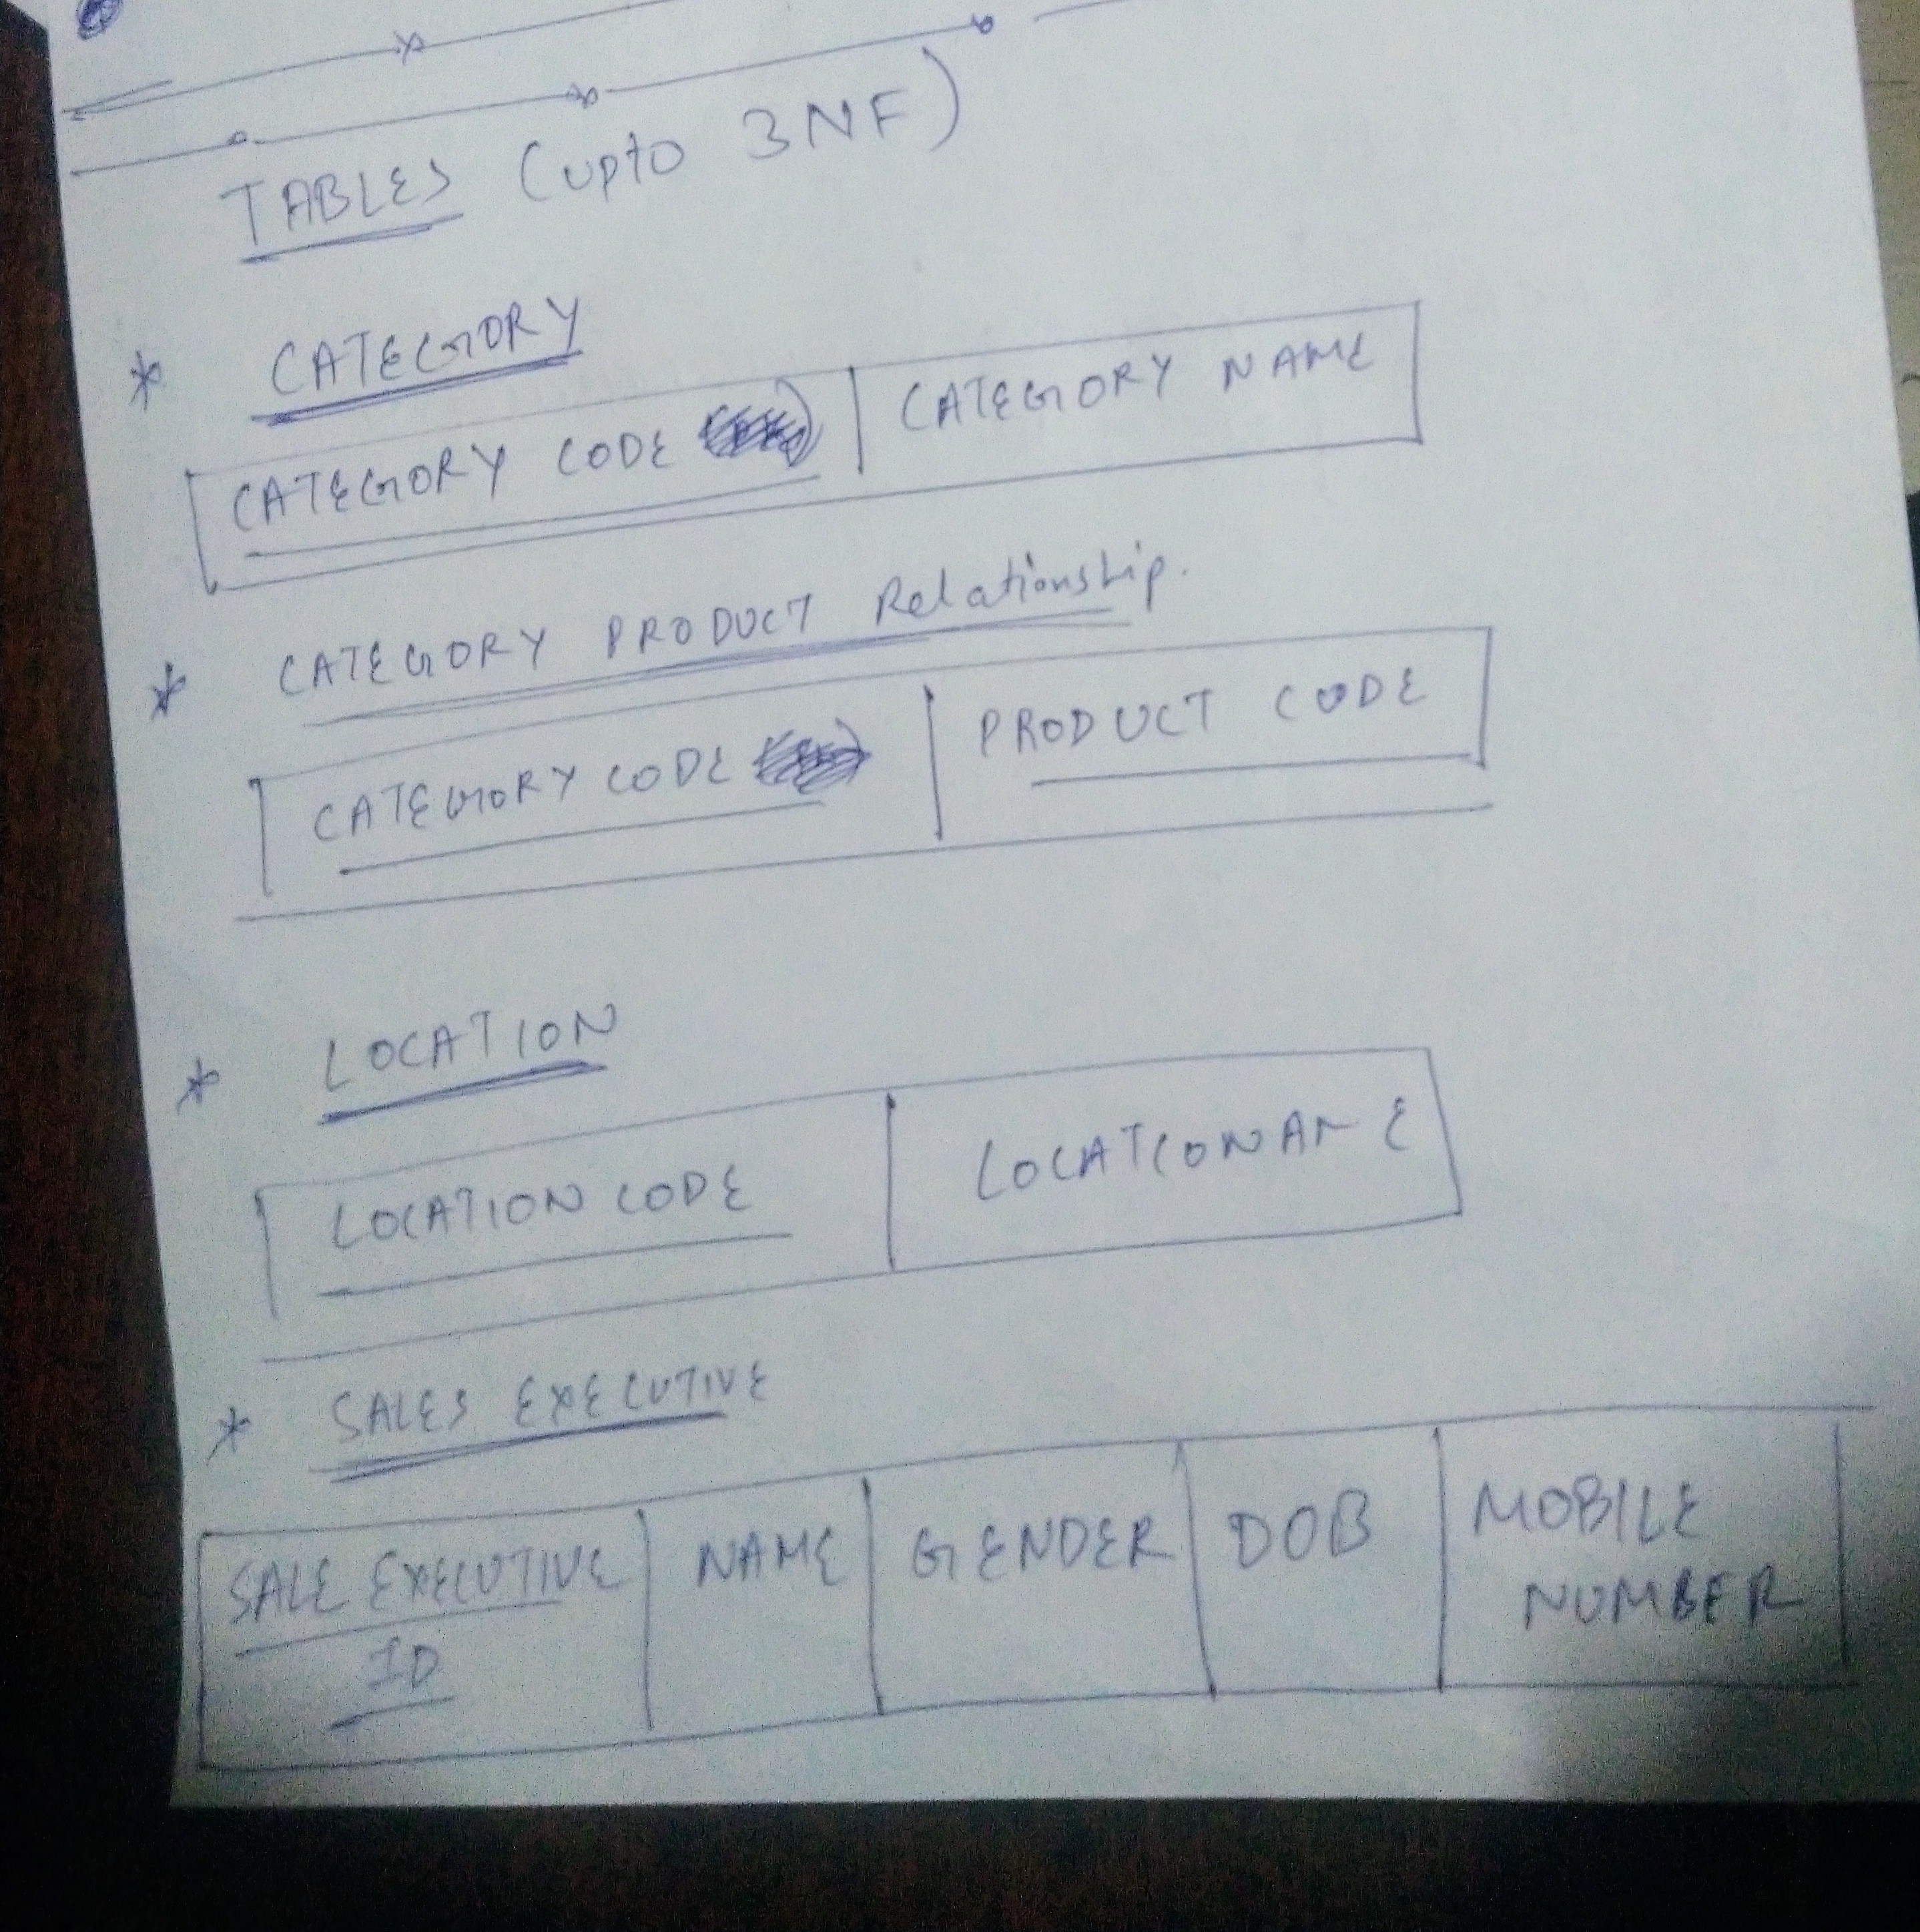 TABLES (upto 3NF)
* CATEGORY
CATEGORY CODE | CATEGORY NAME
* CATEGORY PRODUCT Relationship.
CATEGORY CODE | PRODUCT CODE
* LOCATION
LOCATION CODE | LOCATIONAME
* SALES EXECUTIVE
SALE EXECUTIVE ID | NAME | GENDER | DOB | MOBILE NUMBER